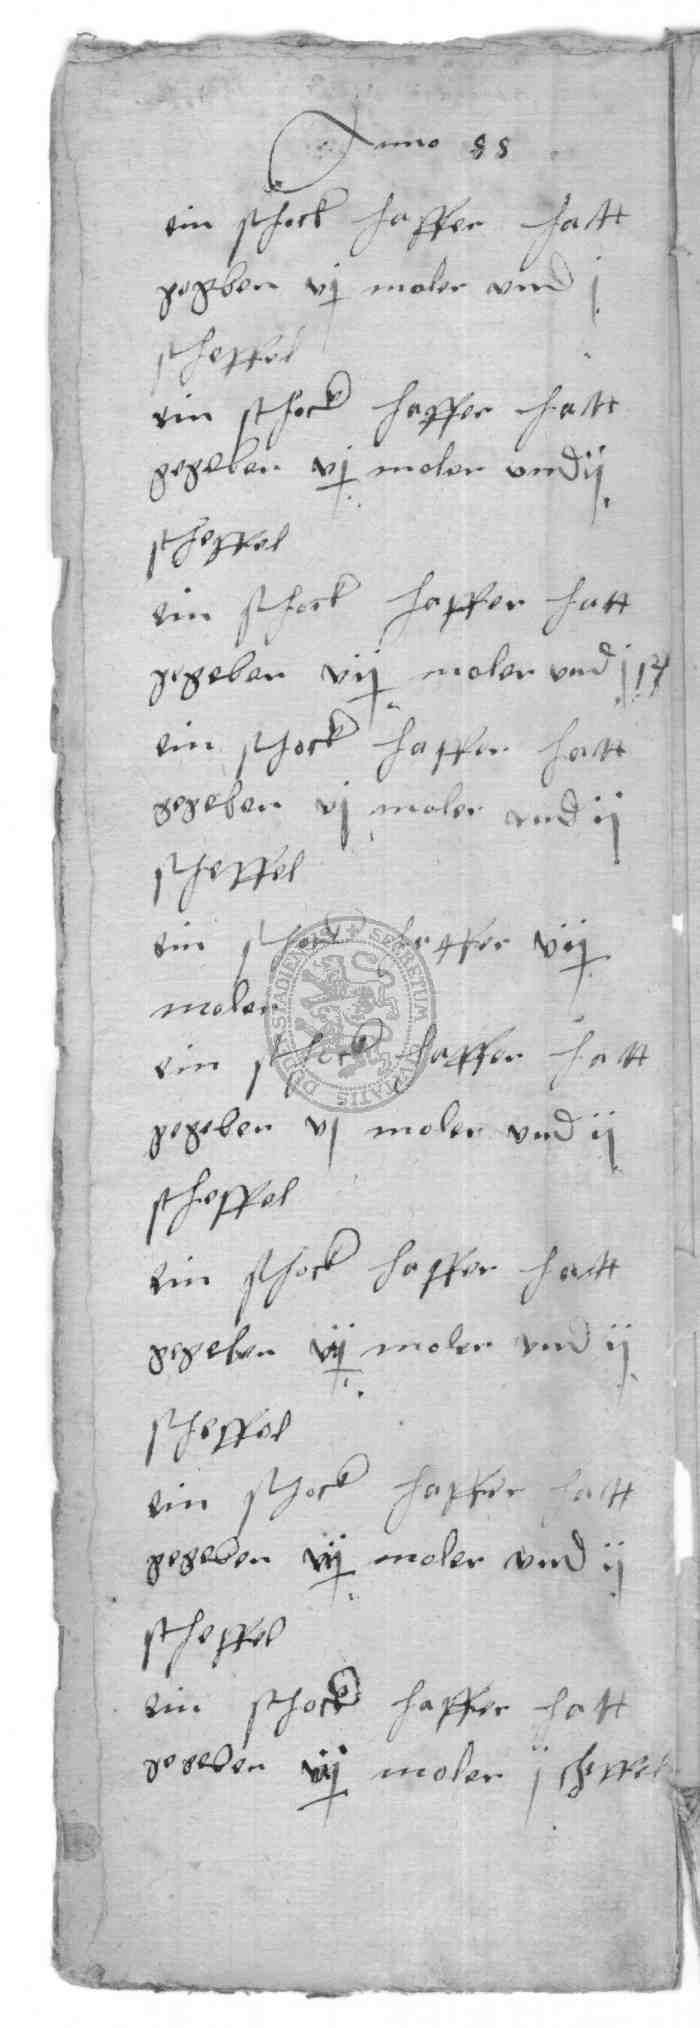 Anno 88
ein schock haffer hatt
gegeben vj moler vnd j
scheffel
ein schock haffer hatt
gegeben vj moler vnd ij
scheffel
ein schock haffer hatt
gegeben vij moler vnd j
ein schock haffer hatt
gegeben vj moler vnd ij
scheffel
ein schock haffer vij
moler
ein schock haffer hatt
gegeben vj moler vnd ij
scheffel
ein schock haffer hatt
gegeben vij moler vnd ij
scheffel
ein schock haffer hatt
gegeben vij moler vnd ij
scheffel
ein schock haffer hatt
gegeben vij moler ij scheffel
SECRETUM CIVITATIS DUDERSTADIENSIS